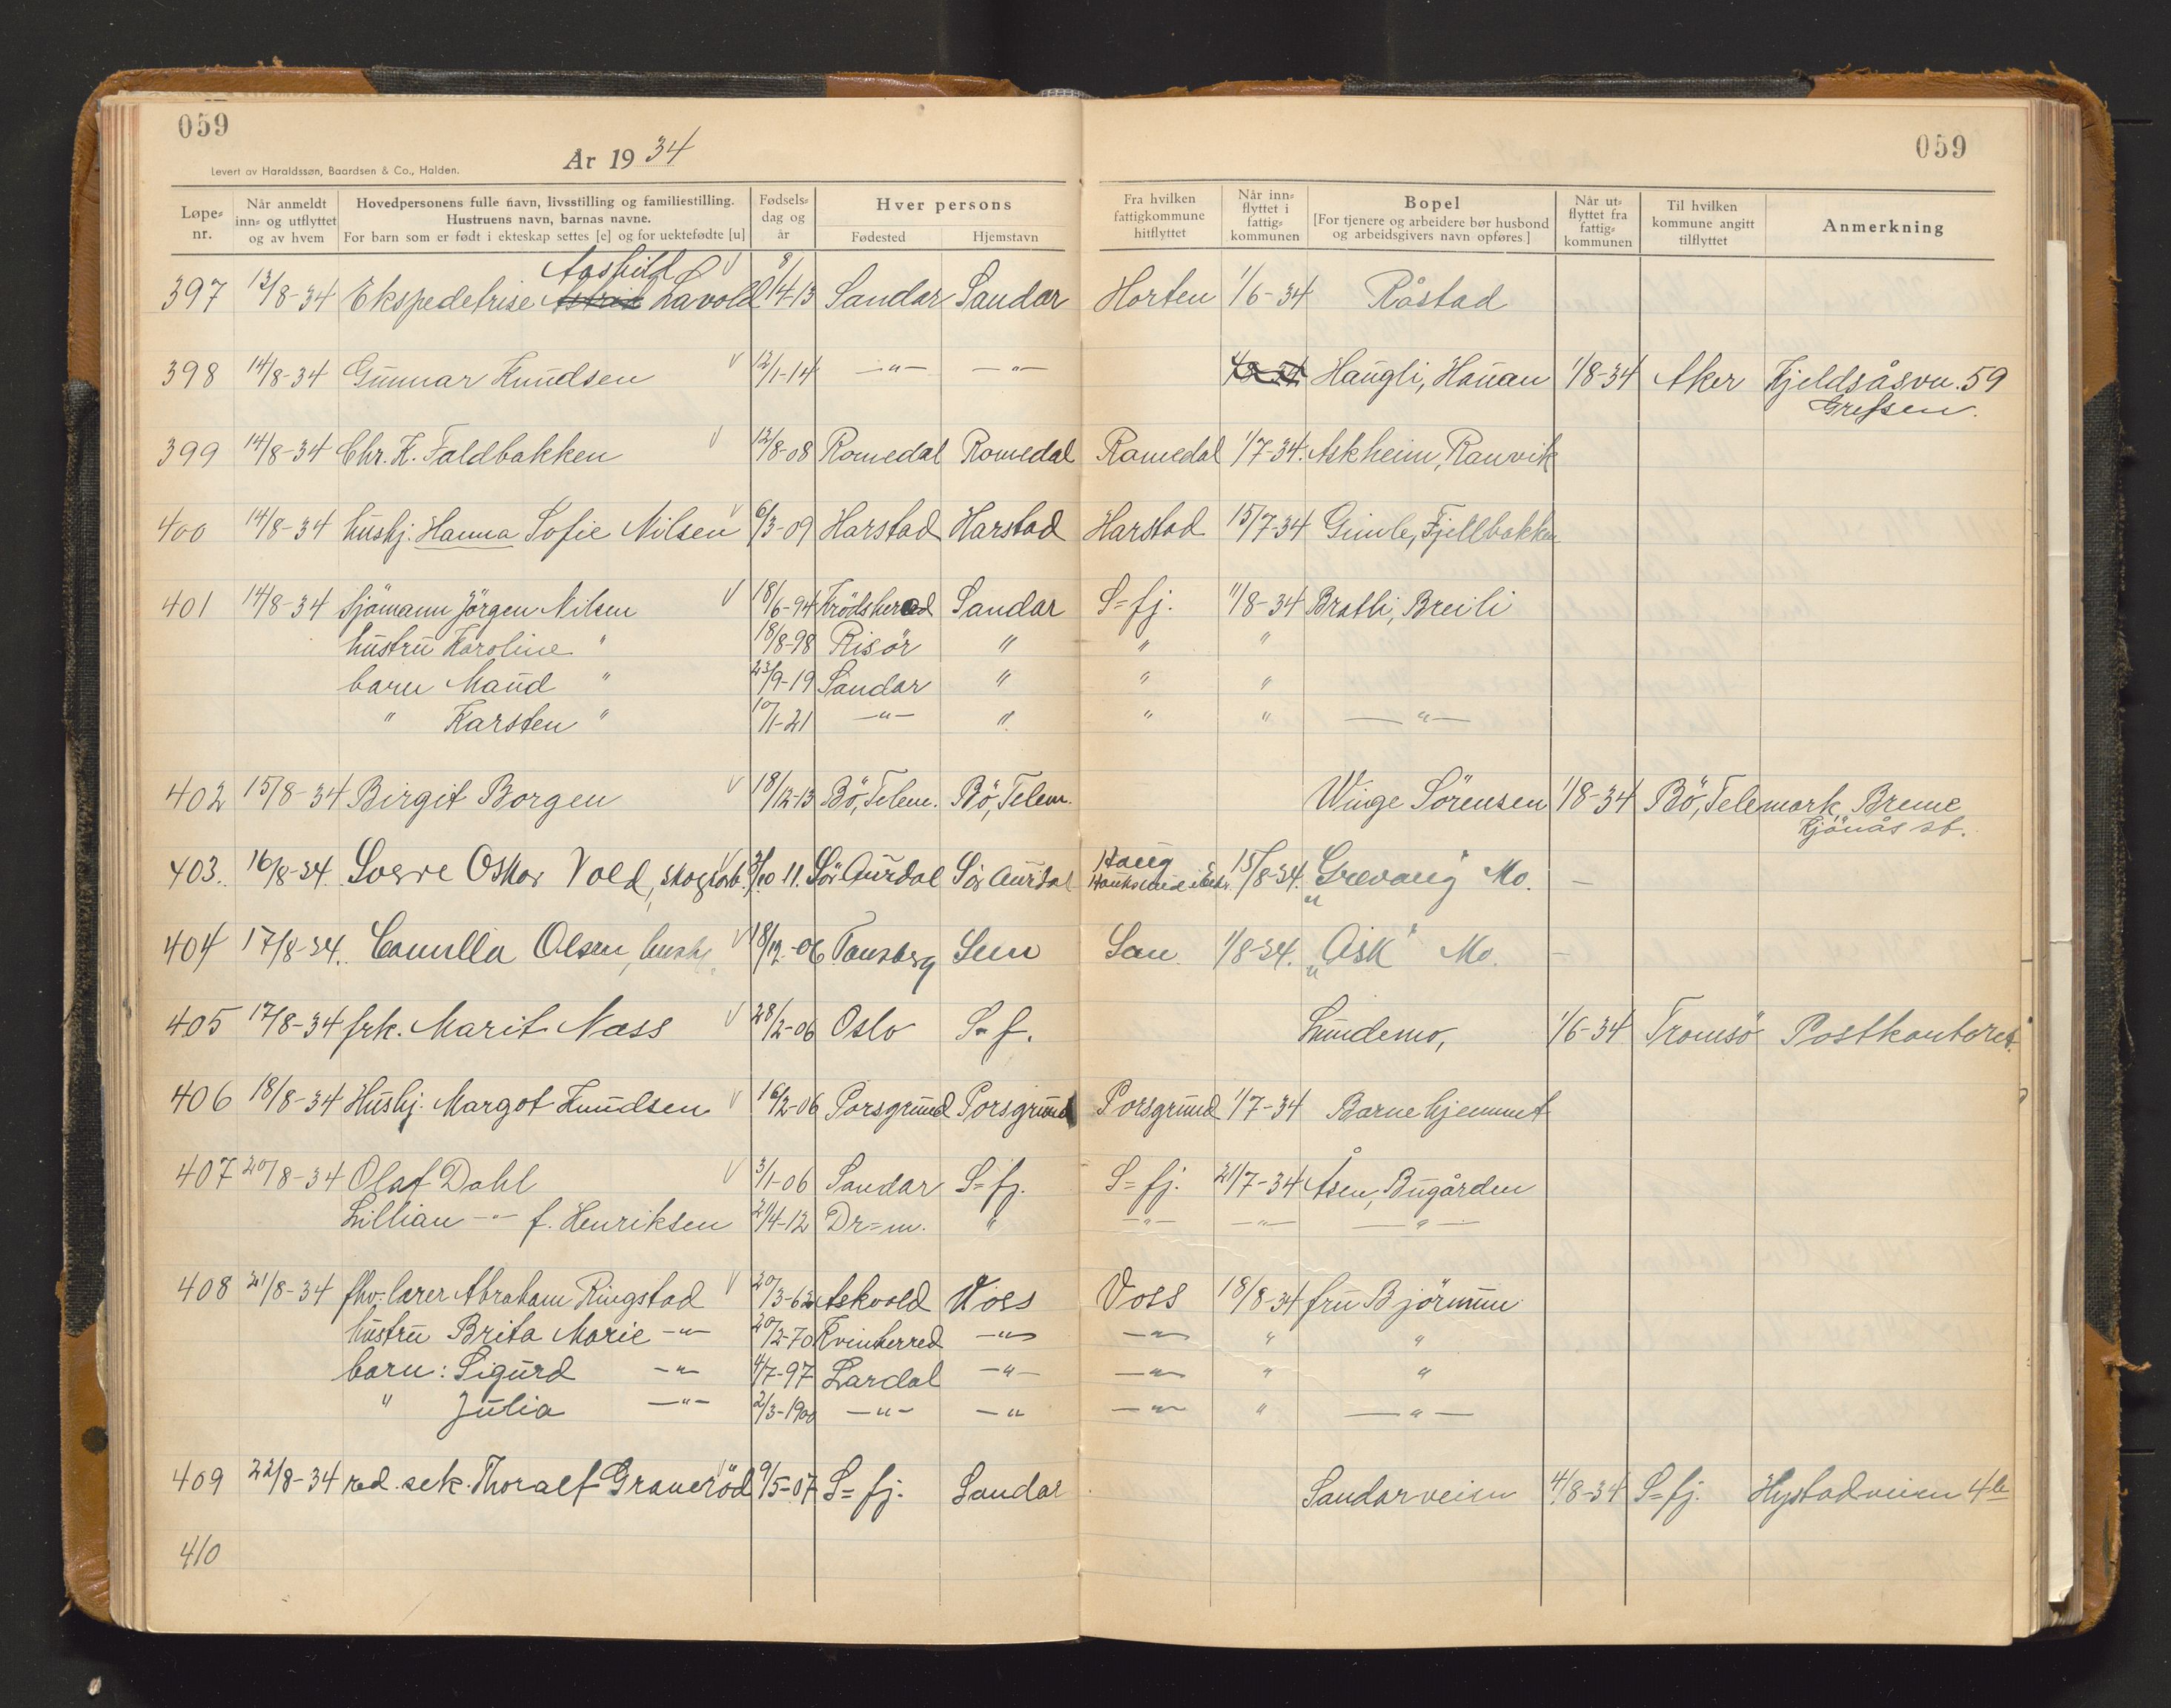 059
059
År 19 34
Levert av Haraldssøn, Baardsen & Co., Halden.
Løpe-nr. Når anmeldt inn- og utflyttet og av hvem Hovedpersonens fulle navn, livsstilling og familiestilling. Hustruens navn, barnas navne. For barn som er født i ekteskap settes [e] og for uektefødte [u] Fødselsdag og år Hver persons Fødested Hjemstavn Fra hvilken fattigkommune hitflyttet Når innflyttet i fattigkommunen Bopel [For tjenere og arbeidere bør husbond og arbeidsgivers navn opføres.] Når utflyttet fra fattigkommunen Til hvilken kommune angitt tilflyttet Anmerkning
Aashild
397 13/8-34 Ekspedetrise Astrid Lavold 8/4-13 Sandar Sandar Horten 1/6-34 Råstad
398 14/8-34 Gunnar Knudsen 12/1-14 -"- -"- Haugli, Hauan 1/8-34 Aker Kjeldsåsvn. 59
Grefsen.
399 14/8-34 Chr. K. Faldbakken 12/8-08 Romedal Romedal Romedal 1/7-34. Askheim, Ranvik
400 14/8-34 hushj. Hanna Sofie Nilsen 6/3-09 Harstad Harstad Harstad 15/7-34 Gimle, Fjellbakken
401 14/8-34 Sjömann Jörgen Nilsen 18/6-94 Krödsherad Sandar S=fj. 11/8-34 Bratli, Breili
hustru Karoline " 18/8-98 Risör " " "
barn Maud " 23/9-19 Sandar " " "
" Karsten " 10/1-21 -"- " " " -"-
402 15/8-34 Birgit Borgen 18/12-13 Bö, Telem. Bö, Telem. Winge Sörensen 1/8-34 Bö, Telemark, Breme
Kjönås st.
403. 16/8-34. Sverre Oskar Vold, skogsarb. 3/10 11. Sör Aurdal Sör Aurdal Haug 15/8-34. "Grevang" Mo. -
404 17/8-34. Camilla Olsen, hushj. 18/12-06 Tønsberg Sem Sem 1/8-34. "Ask" Mo. -
405 17/8-34 frk. Marit Næss 28/2-06 Oslo S=f. Lundemo, 1/6-34 Tromsö Postkontoret.
406 18/8-34 Hushj. Margot Knudsen 16/2-06 Porsgrund Porsgrund Porsgrund 1/7-34 Barnehjemmet
407 20/8-34 Olaf Dahl 3/1-06 Sandar S=fj. S=fj. 21/7-34 Åsen, Bugården
Lillian -"- f. Henriksen 21/4-12 Dr=m. " -"- -"- -"-
408 21/8-34 fhv. lærer Abraham Ringstad 20/3-62 Askvold Voss Voss 18/8-34 fru Björnum
hustru Brita Marie -"- 20/2-70 Kvinherred -"- -"- " "
barn: Sigurd -"- 4/7-97 Lardal -"- -"- " "
" Julia -"- 2/3-1900 -"- -"- -"- " -"-
409 22/8-34 red. sek. Thoralf Granerød 9/5-07 S=fj. Sandar Sandarveien 4/8-34 S=fj. Hystadveien 4b
410